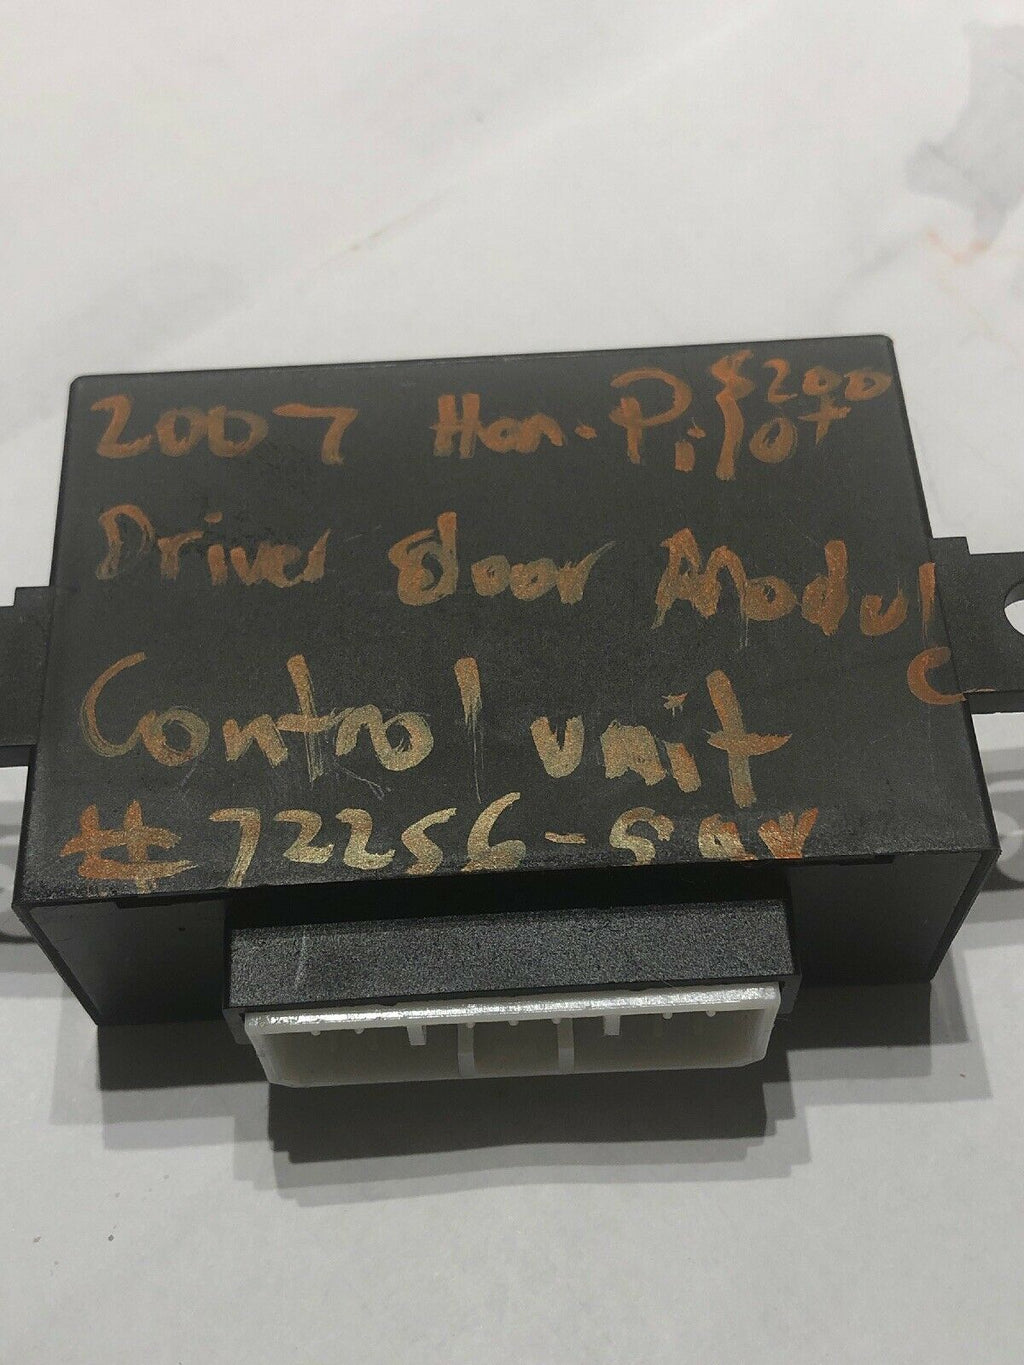 2007 Hon. Pilot $200
Driver door Module
Control unit
# 72256-S9V